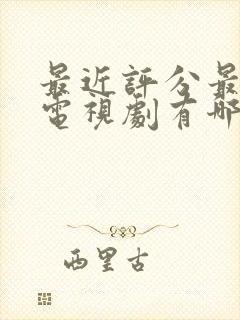 最近評分最
電視劇有哪
西里古